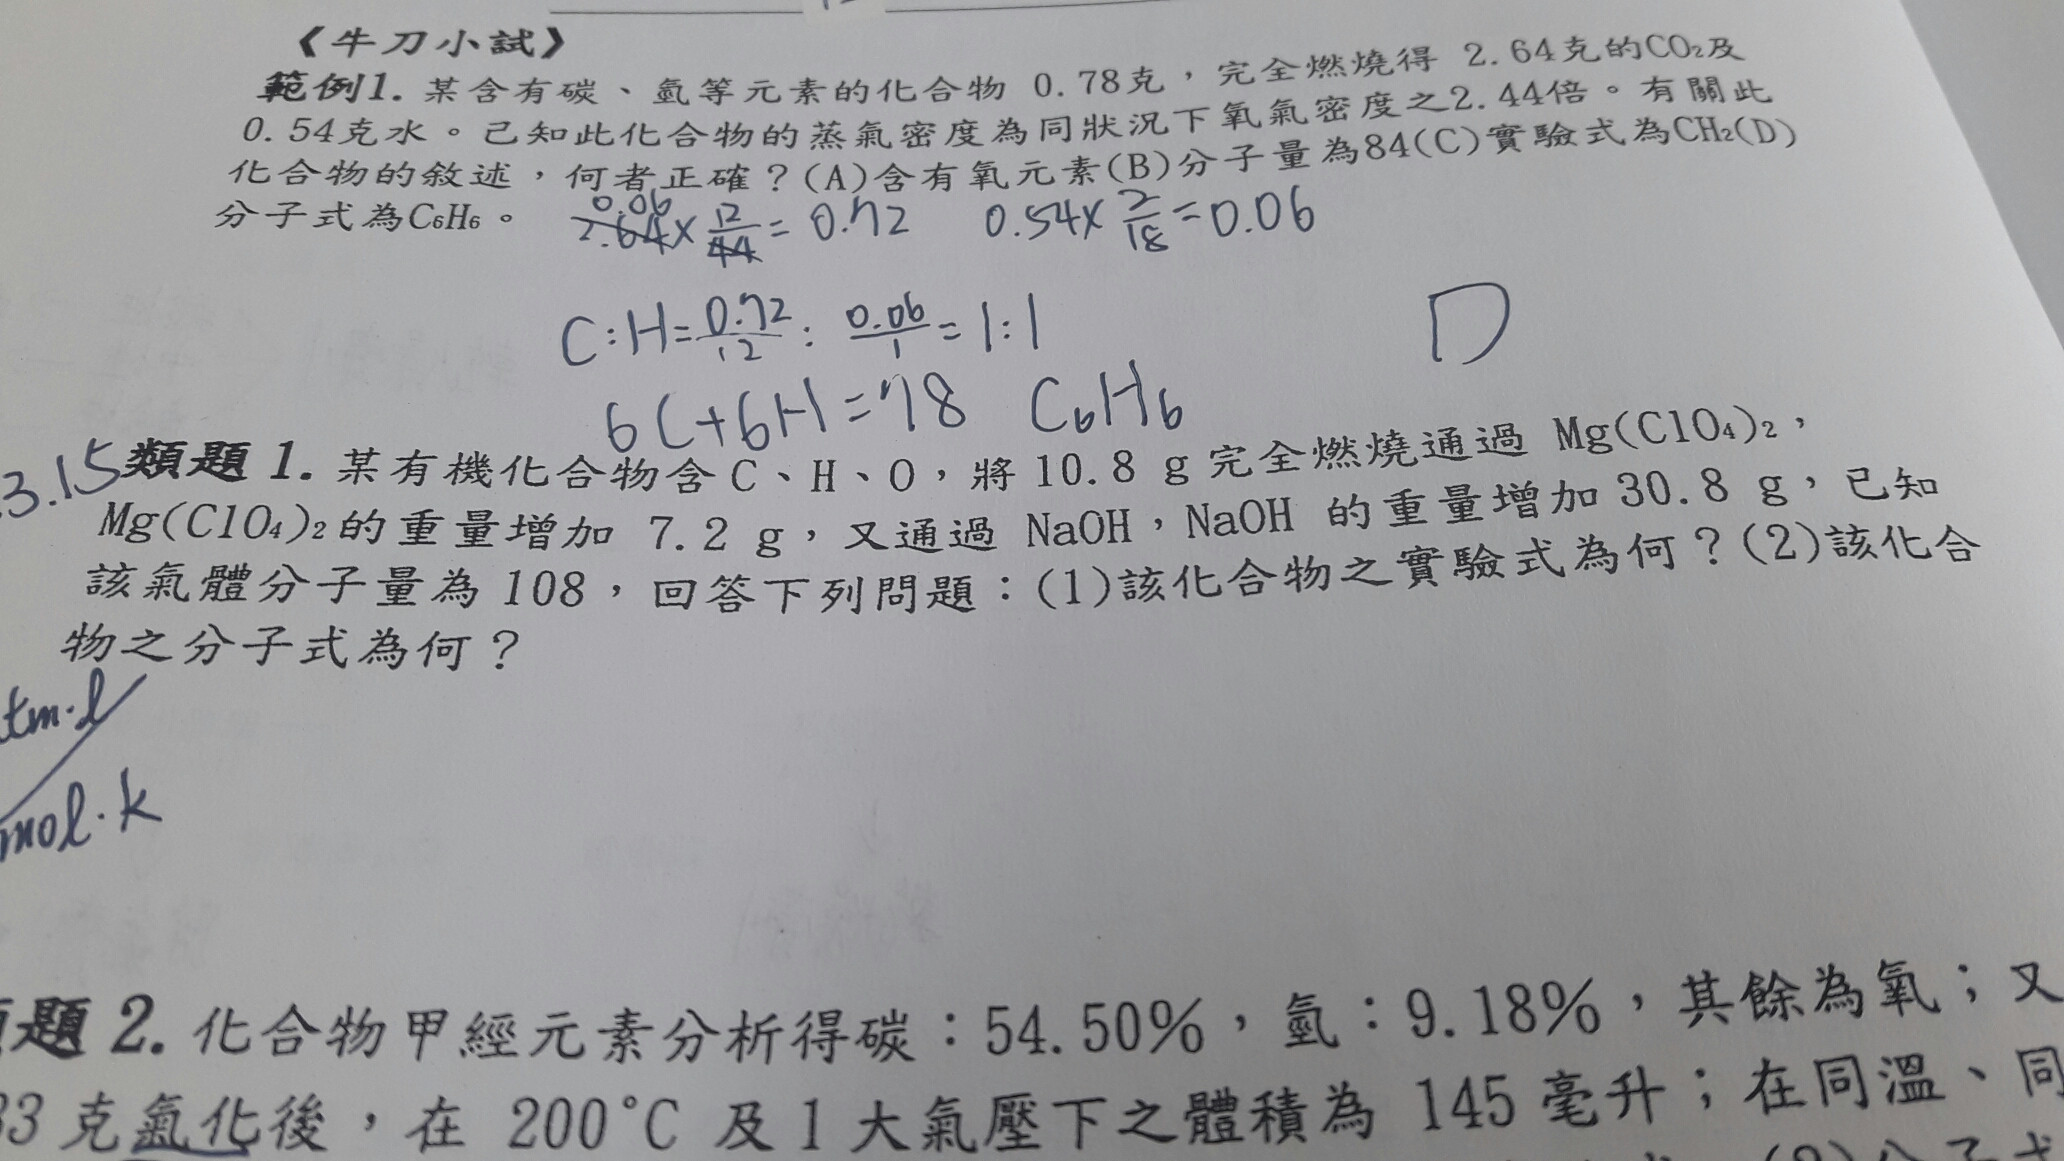 《牛刀小試》
範例1. 某含有碳、氫等元素的化合物 0.78克，完全燃燒得 2.64克的CO₂及
0.54克水。已知此化合物的蒸氣密度為同狀況下氧氣密度之2.44倍。有關此
化合物的敘述，何者正確？(A)含有氧元素(B)分子量為84(C)實驗式為CH₂(D)
分子式為C₆H₆。
0.06
2.64×12/44=0.72 0.54×2/18=0.06
C:H=0.72/12:0.06/1=1:1
D
6C+6H=78 C₆H₆
3.15
類題 1. 某有機化合物含 C、H、O，將 10.8 g 完全燃燒通過 Mg(ClO₄)₂，
Mg(ClO₄)₂ 的重量增加 7.2 g，又通過 NaOH，NaOH 的重量增加 30.8 g，已知
該氣體分子量為 108，回答下列問題：(1)該化合物之實驗式為何？(2)該化合
物之分子式為何？
tm·l
mol·k
題 2. 化合物甲經元素分析得碳：54.50%，氫：9.18%，其餘為氧；又
33 克氣化後，在 200°C 及 1 大氣壓下之體積為 145 毫升；在同溫、同